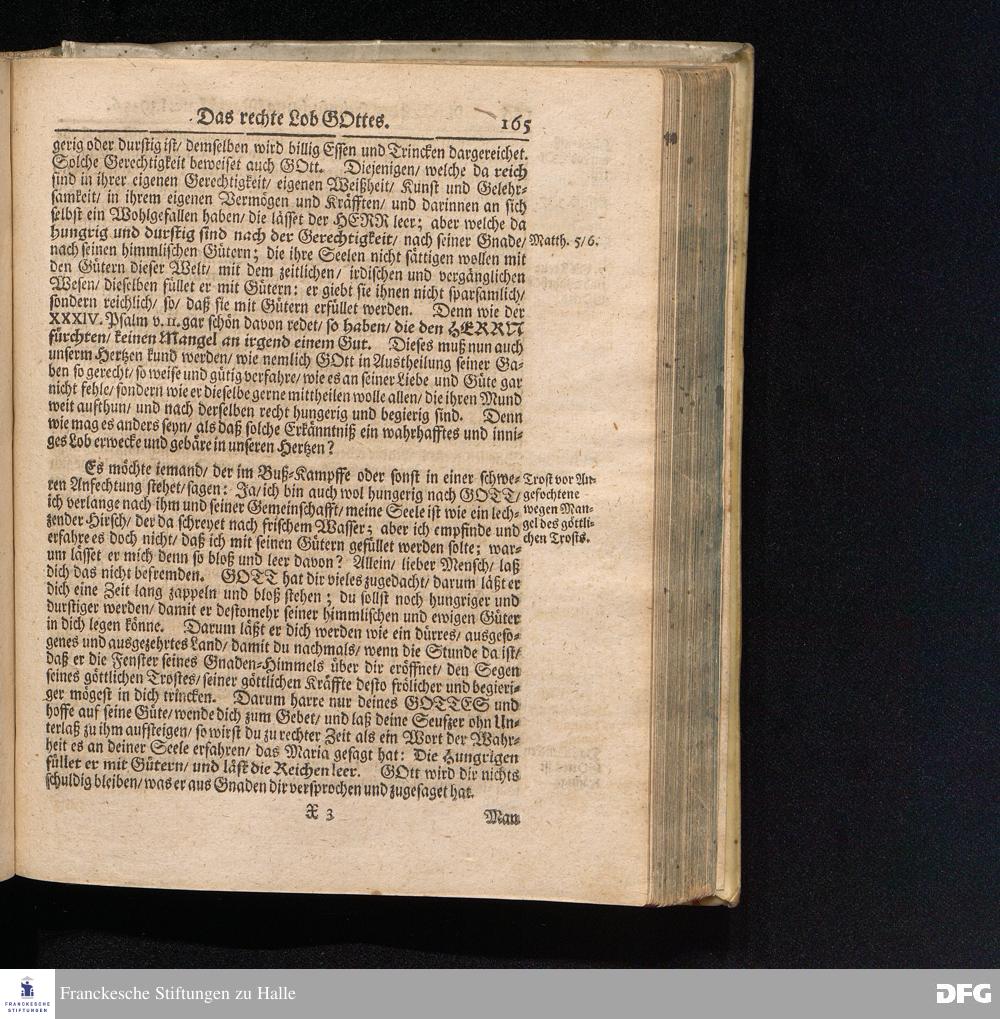 Das rechte Lob GOttes. 165
gerig oder durstig ist/ demselben wird billig Essen und Trincken dargereichet.
Solche Gerechtigkeit beweiset auch GOtt. Diejenigen/ welche da reich
sind in ihrer eigenen Gerechtigkeit/ eigenen Weißheit/ Kunst und Gelehr-
samkeit/ in ihrem eigenen Vermögen und Kräfften/ und darinnen an sich
selbst ein Wohlgefallen haben/ die lässet der HERR leer; aber welche da
hungrig und durstig sind nach der Gerechtigkeit/ nach seiner Gnade/
nach seinen himmlischen Gütern; die ihre Seelen nicht sättigen wollen mit
den Gütern dieser Welt/ mit dem zeitlichen/ irdischen und vergänglichen
Wesen/ dieselben füllet er mit Gütern: er giebt sie ihnen nicht sparsamlich/
sondern reichlich/ so/ daß sie mit Gütern erfüllet werden. Denn wie der
XXXIV. Psalm v. 11. gar schön davon redet/ so haben/ die den HERRN
fürchten/ keinen Mangel an irgend einem Gut. Dieses muß nun auch
unserm Hertzen kund werden/ wie nemlich GOtt in Austheilung seiner Ga-
ben so gerecht/ so weise und gütig verfahre/ wie es an seiner Liebe und Güte gar
nicht fehle/ sondern wie er dieselbe gerne mittheilen wolle allen/ die ihren Mund
weit aufthun/ und nach derselben recht hungerig und begierig sind. Denn
wie mag es anders seyn/ als daß solche Erkänntniß ein wahrhafftes und inni-
ges Lob erwecke und gebäre in unseren Hertzen?
Matth. 5/6.
Es möchte iemand/ der im Buß-Kampffe oder sonst in einer schwe-
ren Anfechtung stehet/ sagen: Ja/ ich bin auch wol hungerig nach GOTT/
ich verlange nach ihm und seiner Gemeinschafft/ meine Seele ist wie ein lech-
zender Hirsch/ der da schreyet nach frischem Wasser; aber ich empfinde und
erfahre es doch nicht/ daß ich mit seinen Gütern gefüllet werden solte; war-
um lässet er mich denn so bloß und leer davon? Allein/ lieber Mensch/ laß
dich das nicht befremden. GOTT hat dir vieles zugedacht/ darum läßt er
dich eine Zeit lang zappeln und bloß stehen; du sollst noch hungriger und
durstiger werden/ damit er destomehr seiner himmlischen und ewigen Güter
in dich legen könne. Darum läßt er dich werden wie ein dürres/ ausgeso-
genes und ausgezehrtes Land/ damit du nachmals/ wenn die Stunde da ist/
daß er die Fenster seines Gnaden-Himmels über dir eröffnet/ den Segen
seines göttlichen Trostes/ seiner göttlichen Kräffte desto frölicher und begieri-
ger mögest in dich trincken. Darum harre nur deines GOTTES und
hoffe auf seine Güte/ wende dich zum Gebet/ und laß deine Seufzer ohn Un-
terlaß zu ihm aufsteigen/ so wirst du zu rechter Zeit als ein Wort der Wahr-
heit es an deiner Seele erfahren/ das Maria gesagt hat: Die Hungrigen
füllet er mit Gütern/ und läst die Reichen leer. GOtt wird dir nichts
schuldig bleiben/ was er aus Gnaden dir versprochen und zugesaget hat.
Trost vor An-
gefochtene
wegen Man-
gel des göttli-
chen Trosts.
X 3 Man
FRANCKESCHE
STIFTUNGEN
Franckesche Stiftungen zu Halle
DFG